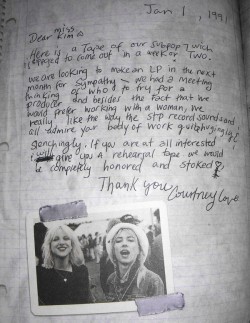 Jan 1, 1991
miss
Dear Kim
Here is a Tape of our subpop
to come out in a week or Two.
we are looking to make an LP in the next
month for Sympathy – we had a meeting
thinking of who to try for a
producer and besides the fact that we
would prefer working with a woman, we
really like the way the STP record sounds and
all admire your body of work
gonchingly. If you are at all interested
I will give you A rehearsal tape we would
be completely honored and stoked
Thank you
Courtney Love